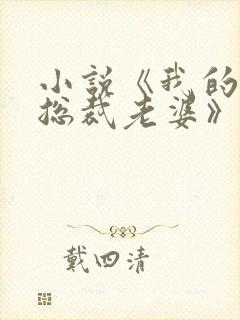 小说《我的
总裁老婆》
戴四清